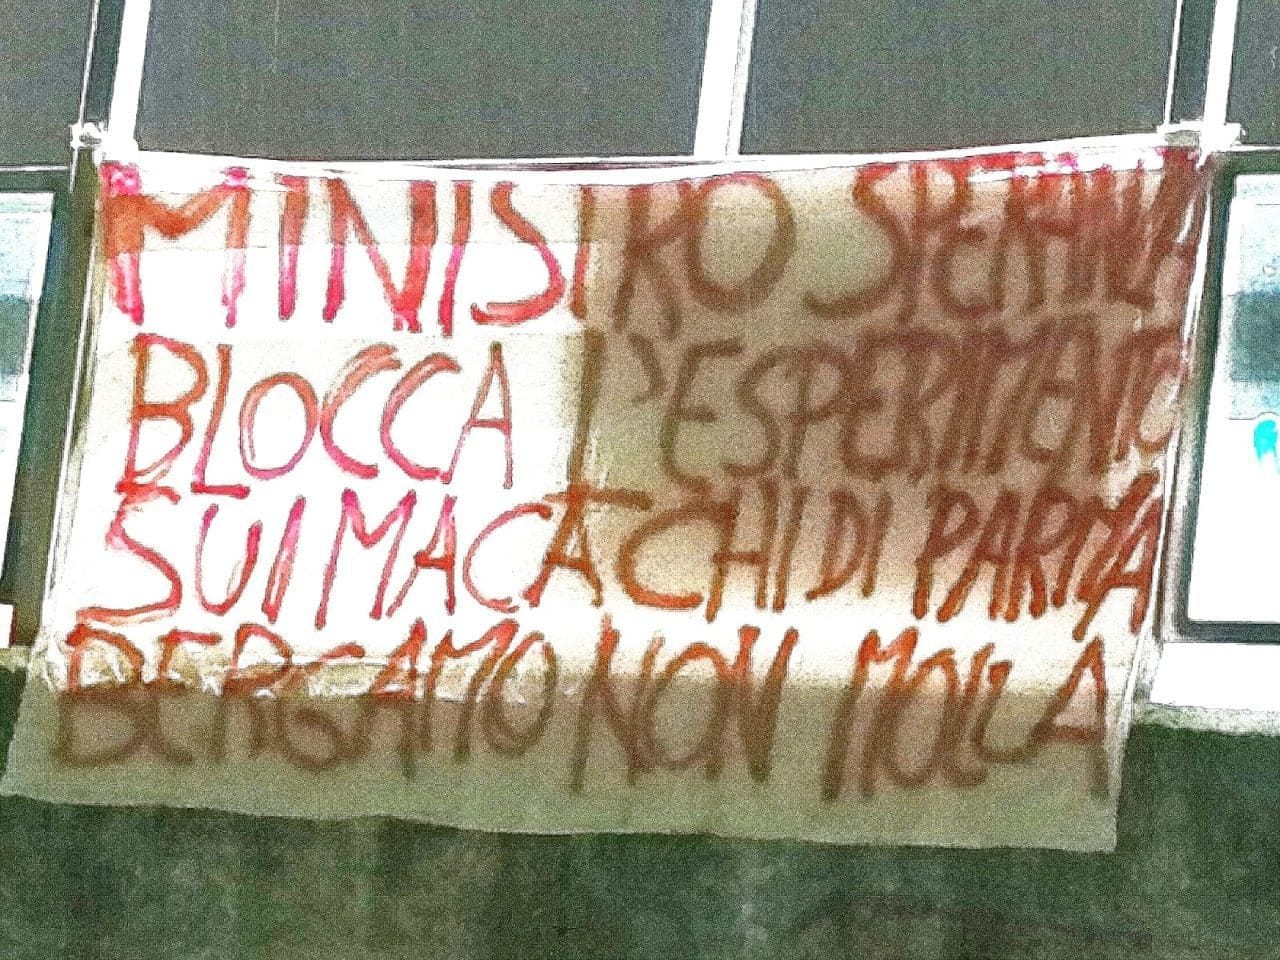 MINISTRO SPERANZA
BLOCCA L'ESPERIMENTO
SUI MACACHI DI PARMA
BERGAMO NON MOLLA